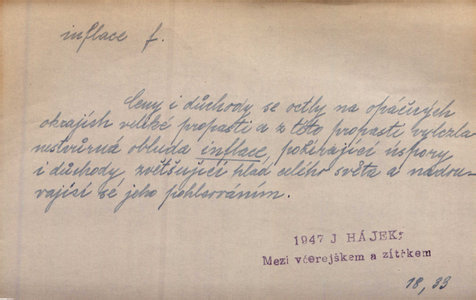 inflace f.
Ceny i důchody se octly na opáčných
okrajích veliké propasti a z této propasti vylezla
nestvůrná obluda inflace, požírající úspory
i důchody, zvětšující hlad celého světa a nadou-
vající se jeho pohlcováním.
1947 J HÁJEK:
Mezi včerejškem a zítřkem
18, 33